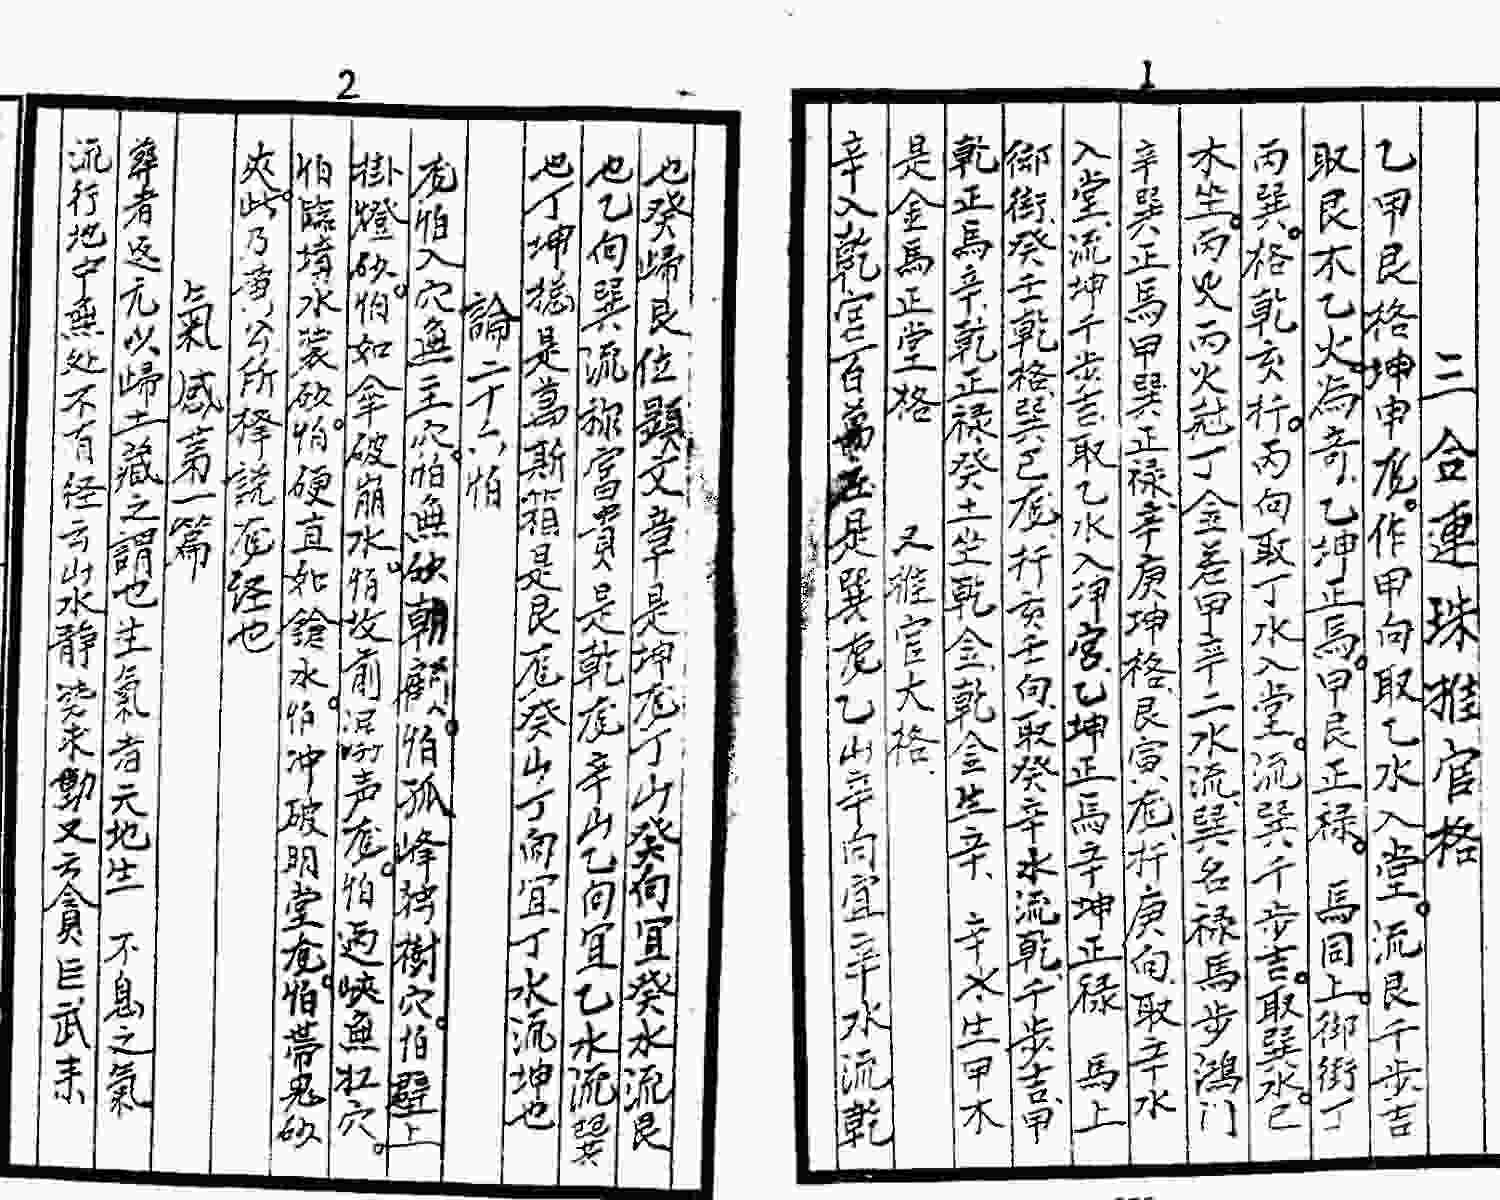 1
三合連珠推官格
乙甲艮格坤申龙。作甲向取乙水入堂。流艮千步吉
取艮木乙火。為奇、乙坤正馬。甲艮正禄。馬同上。御街丁
丙巽。格乾亥行。丙向取丁水入堂。流巽千步吉。取巽水。巳
木坐。丙火丙火尅丁金差甲辛二水流巽名禄馬步鴻门
辛巽正馬甲巽正禄、辛庚坤格、艮寅龙、行庚向、取辛水
入堂、流坤千步吉、取乙水入坤宮、乙坤正馬辛坤正禄 馬上
御街、癸壬乾格、巽巳龙、行亥壬向、取癸辛水流乾、千步吉、甲
乾正馬辛、乾正禄癸土坐乾金、乾金生辛、辛水生甲木
是金馬正堂格 又推官大格
辛入乾、宮百萬 是巽龙乙山辛向宜辛水流乾
2
也癸歸艮位顕文章是坤龙丁山癸向宜癸水流艮
也乙向巽流 富貴是乾龙辛山乙向宜乙水流巽
也丁坤 是萬斯箱是艮龙癸山丁向宜丁水流坤也
論二十六怕
龙怕入穴無主穴。怕無砂朝顧、怕孤峰 樹穴。怕壁上
掛燈砂。怕如傘破崩水。怕坟前 声龙。怕两峽無扛穴。
怕臨 水裳砂。怕硬直如鎗水。怕冲破明堂龙。怕帶鬼砂
夾。此乃 公所择説龙经也
氣感第一篇
葬者返元以歸土藏之謂也生氣者天地生 不息之氣
流行地中無处不有经云山水静 未動又云貪巨武未